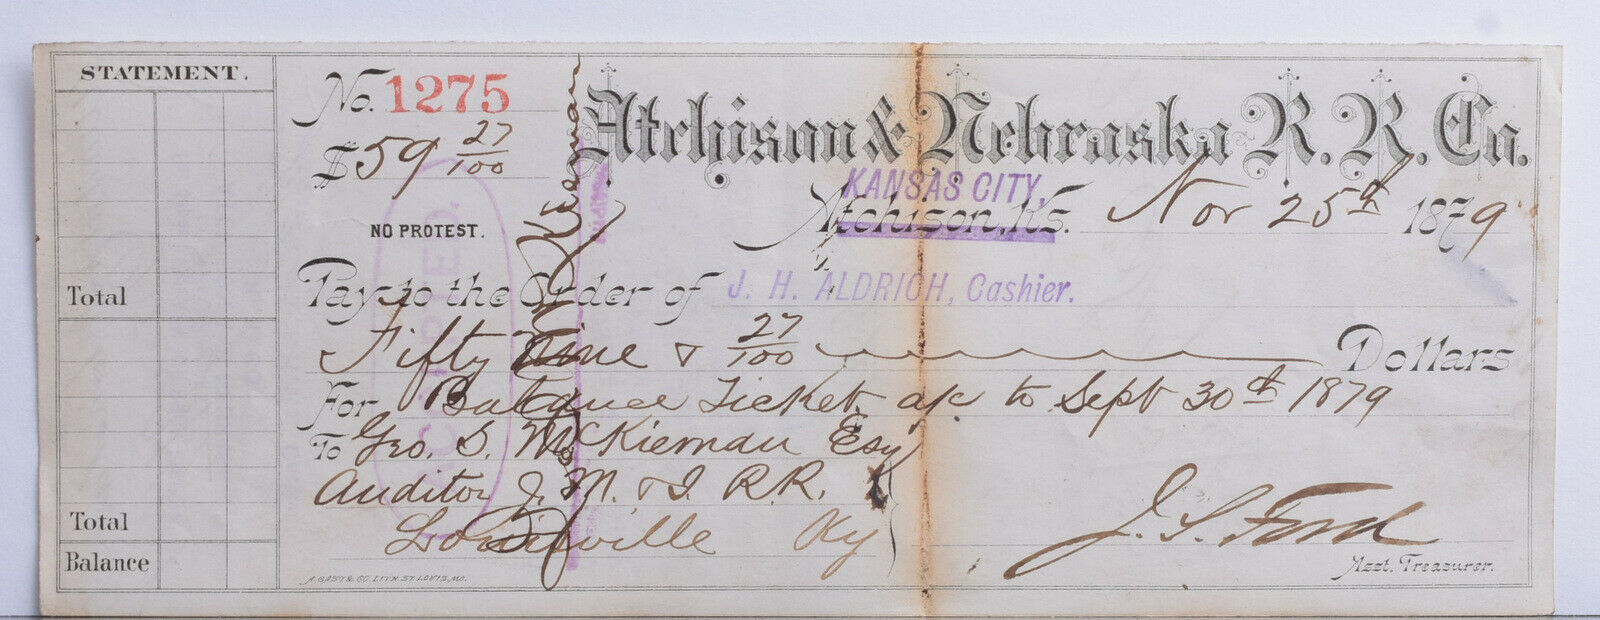 STATEMENT.
Total
Total
Balance
No. 1275
$ 59 27/100
NO PROTEST.
Atchison & Nebraska R. R. Co.
KANSAS CITY,
Atchison, Ks. Nov 25th 1879
Pay to the Order of J. H. ALDRICH, Cashier.
Fifty Nine & 27/100 Dollars
For Balance Ticket a/c to Sept 30th 1879
To Geo. S. McKiernan Esq
Auditor J. M. & I. R.R.
Louisville Ky
J. S. Ford
Asst. Treasurer.
A. GAST & CO. LITH. ST. LOUIS, MO.